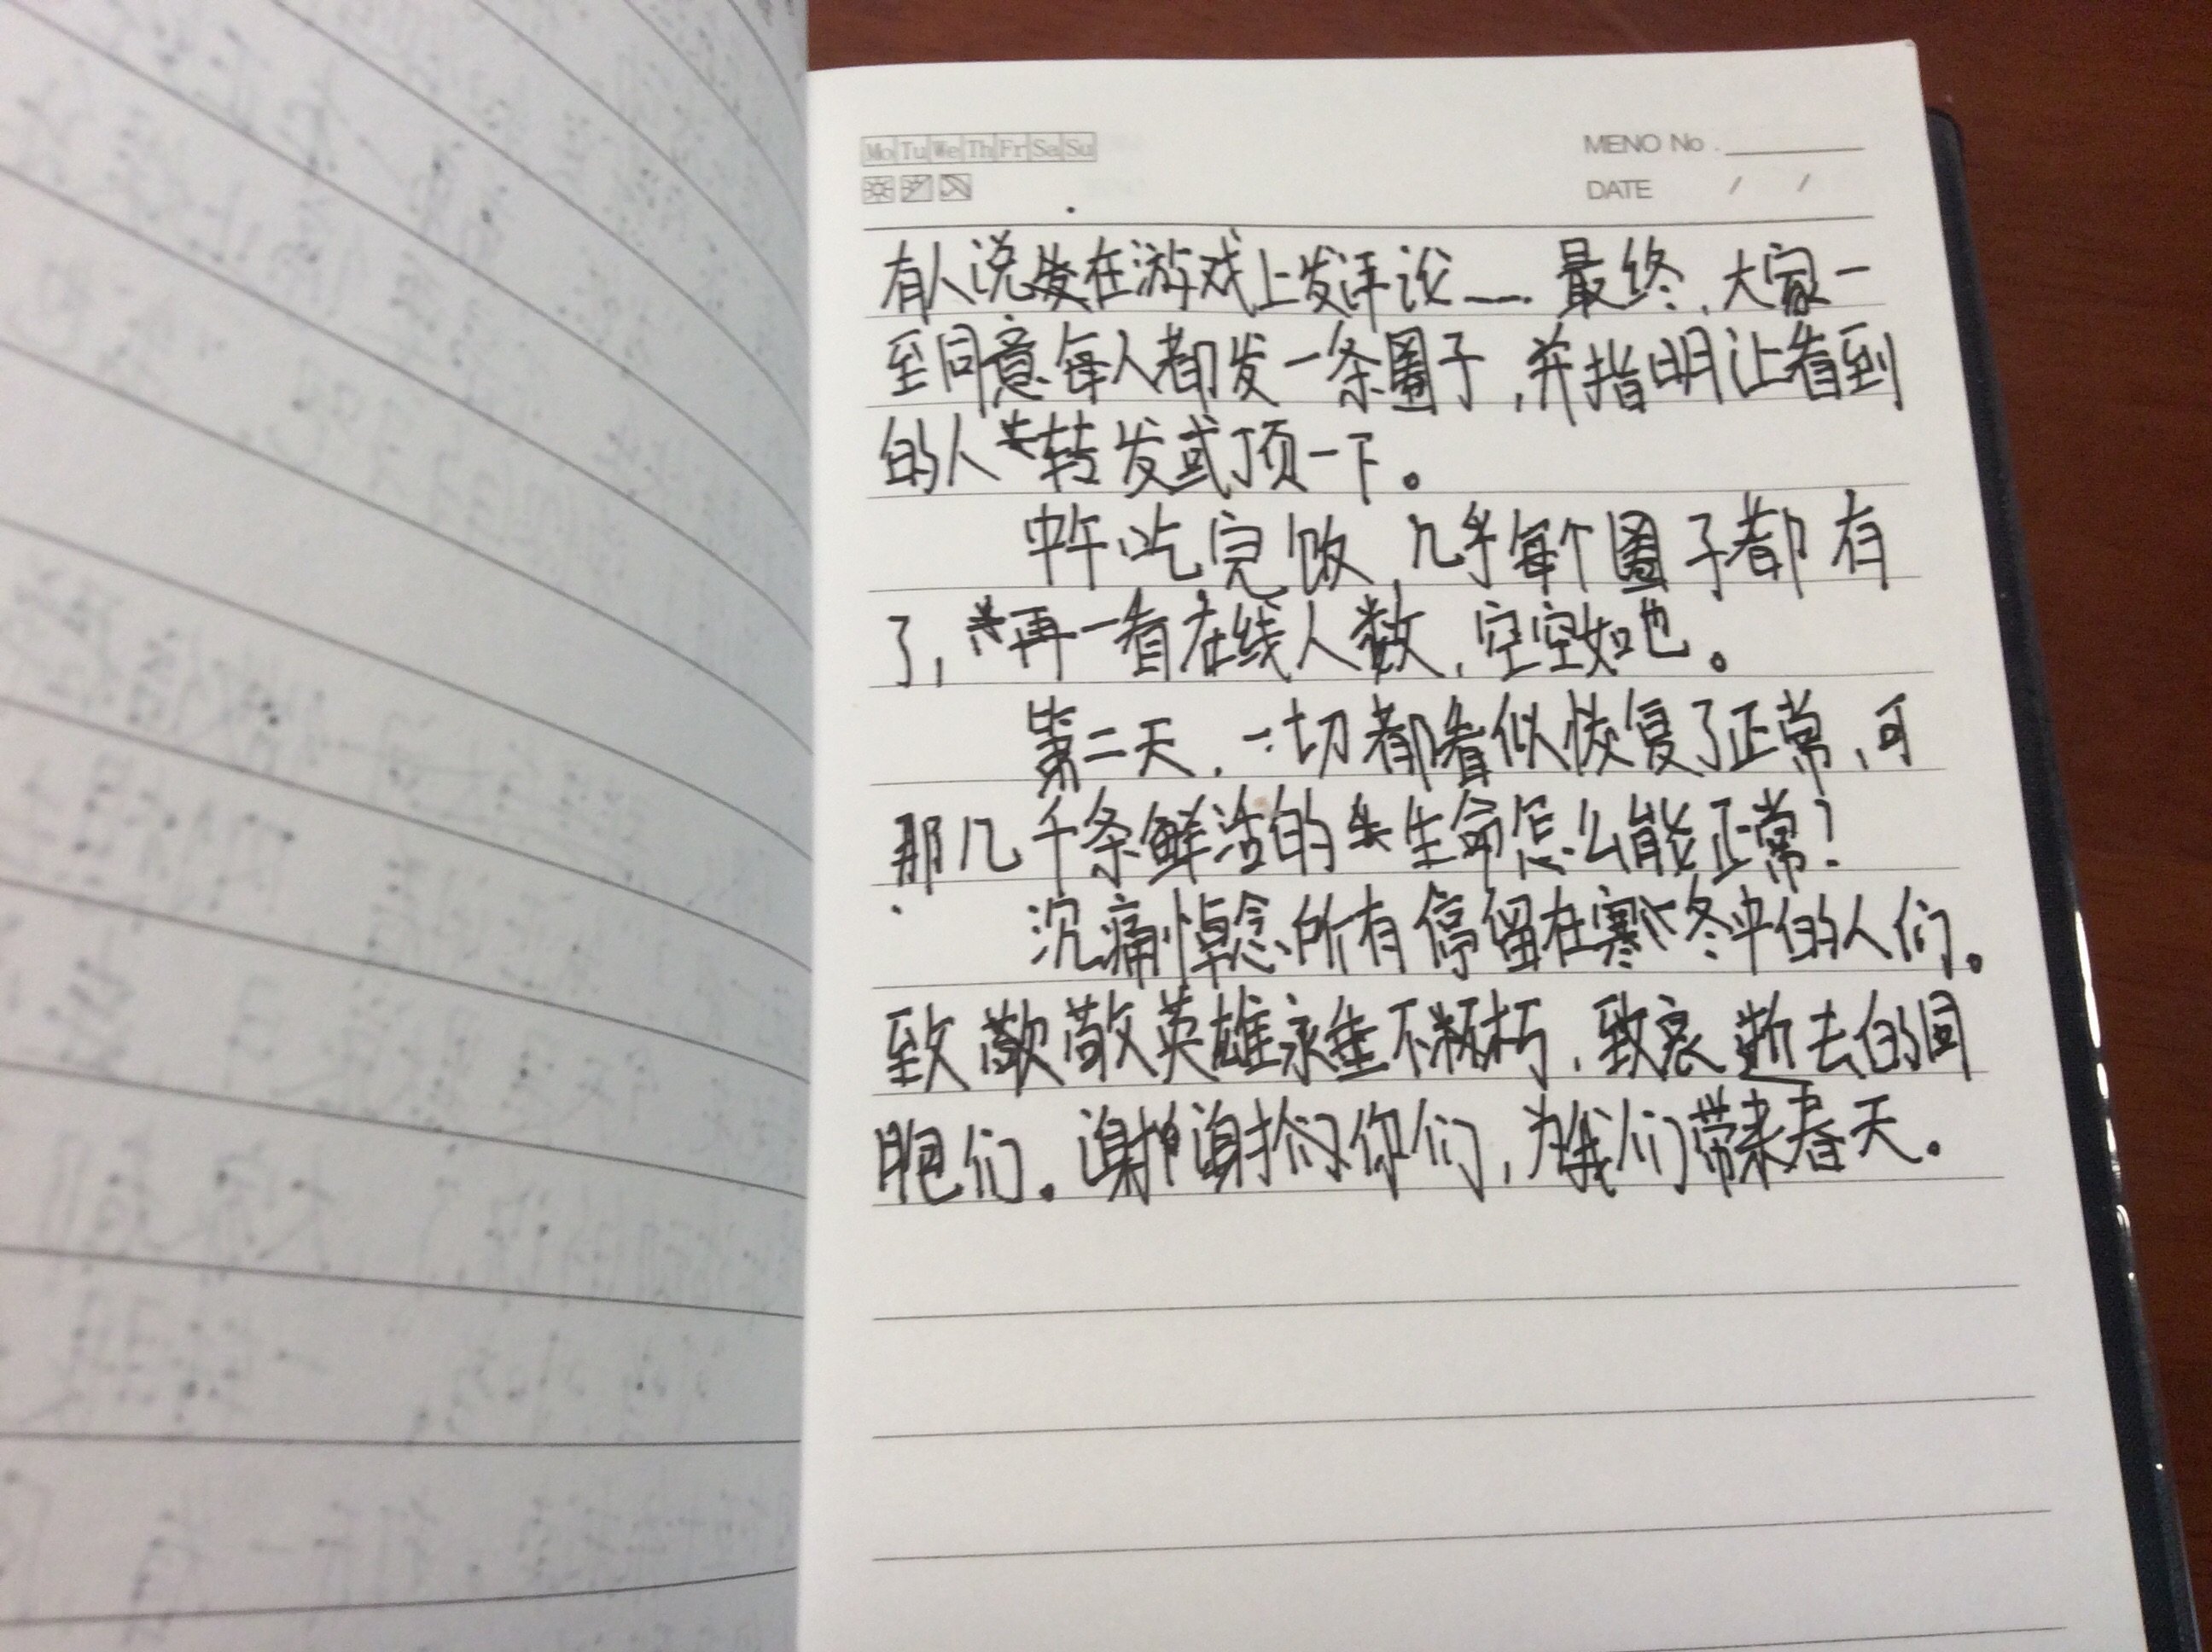 Mo Tu We Th Fr Sa Su
MENO No.
DATE / /
有人说发在游戏上发评论……最终,大家一
至同意每人都发一条圈子,并指明让看到
的人转发或顶一下。
中午吃完饭,几乎每个圈子都有
了,再一看在线人数,空空如也。
第二天,一切都看似恢复了正常,可
那几千条鲜活的生命怎么能正常!
沉痛悼念所有停留在寒冬中的人们。
致敬英雄永垂不朽,致哀逝去的同
胞们。谢谢你们,为我们带来春天。